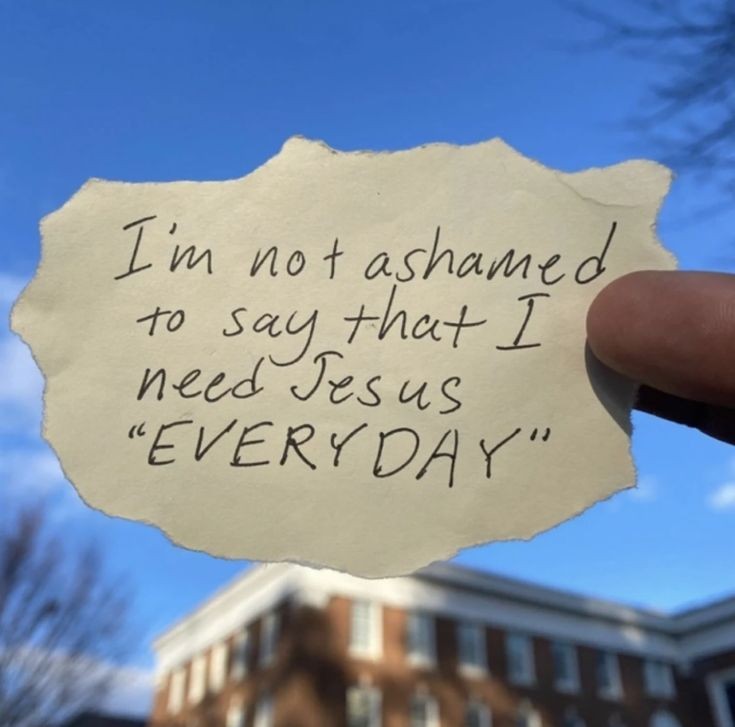 I'm not ashamed
to say that I
need Jesus
"EVERYDAY"